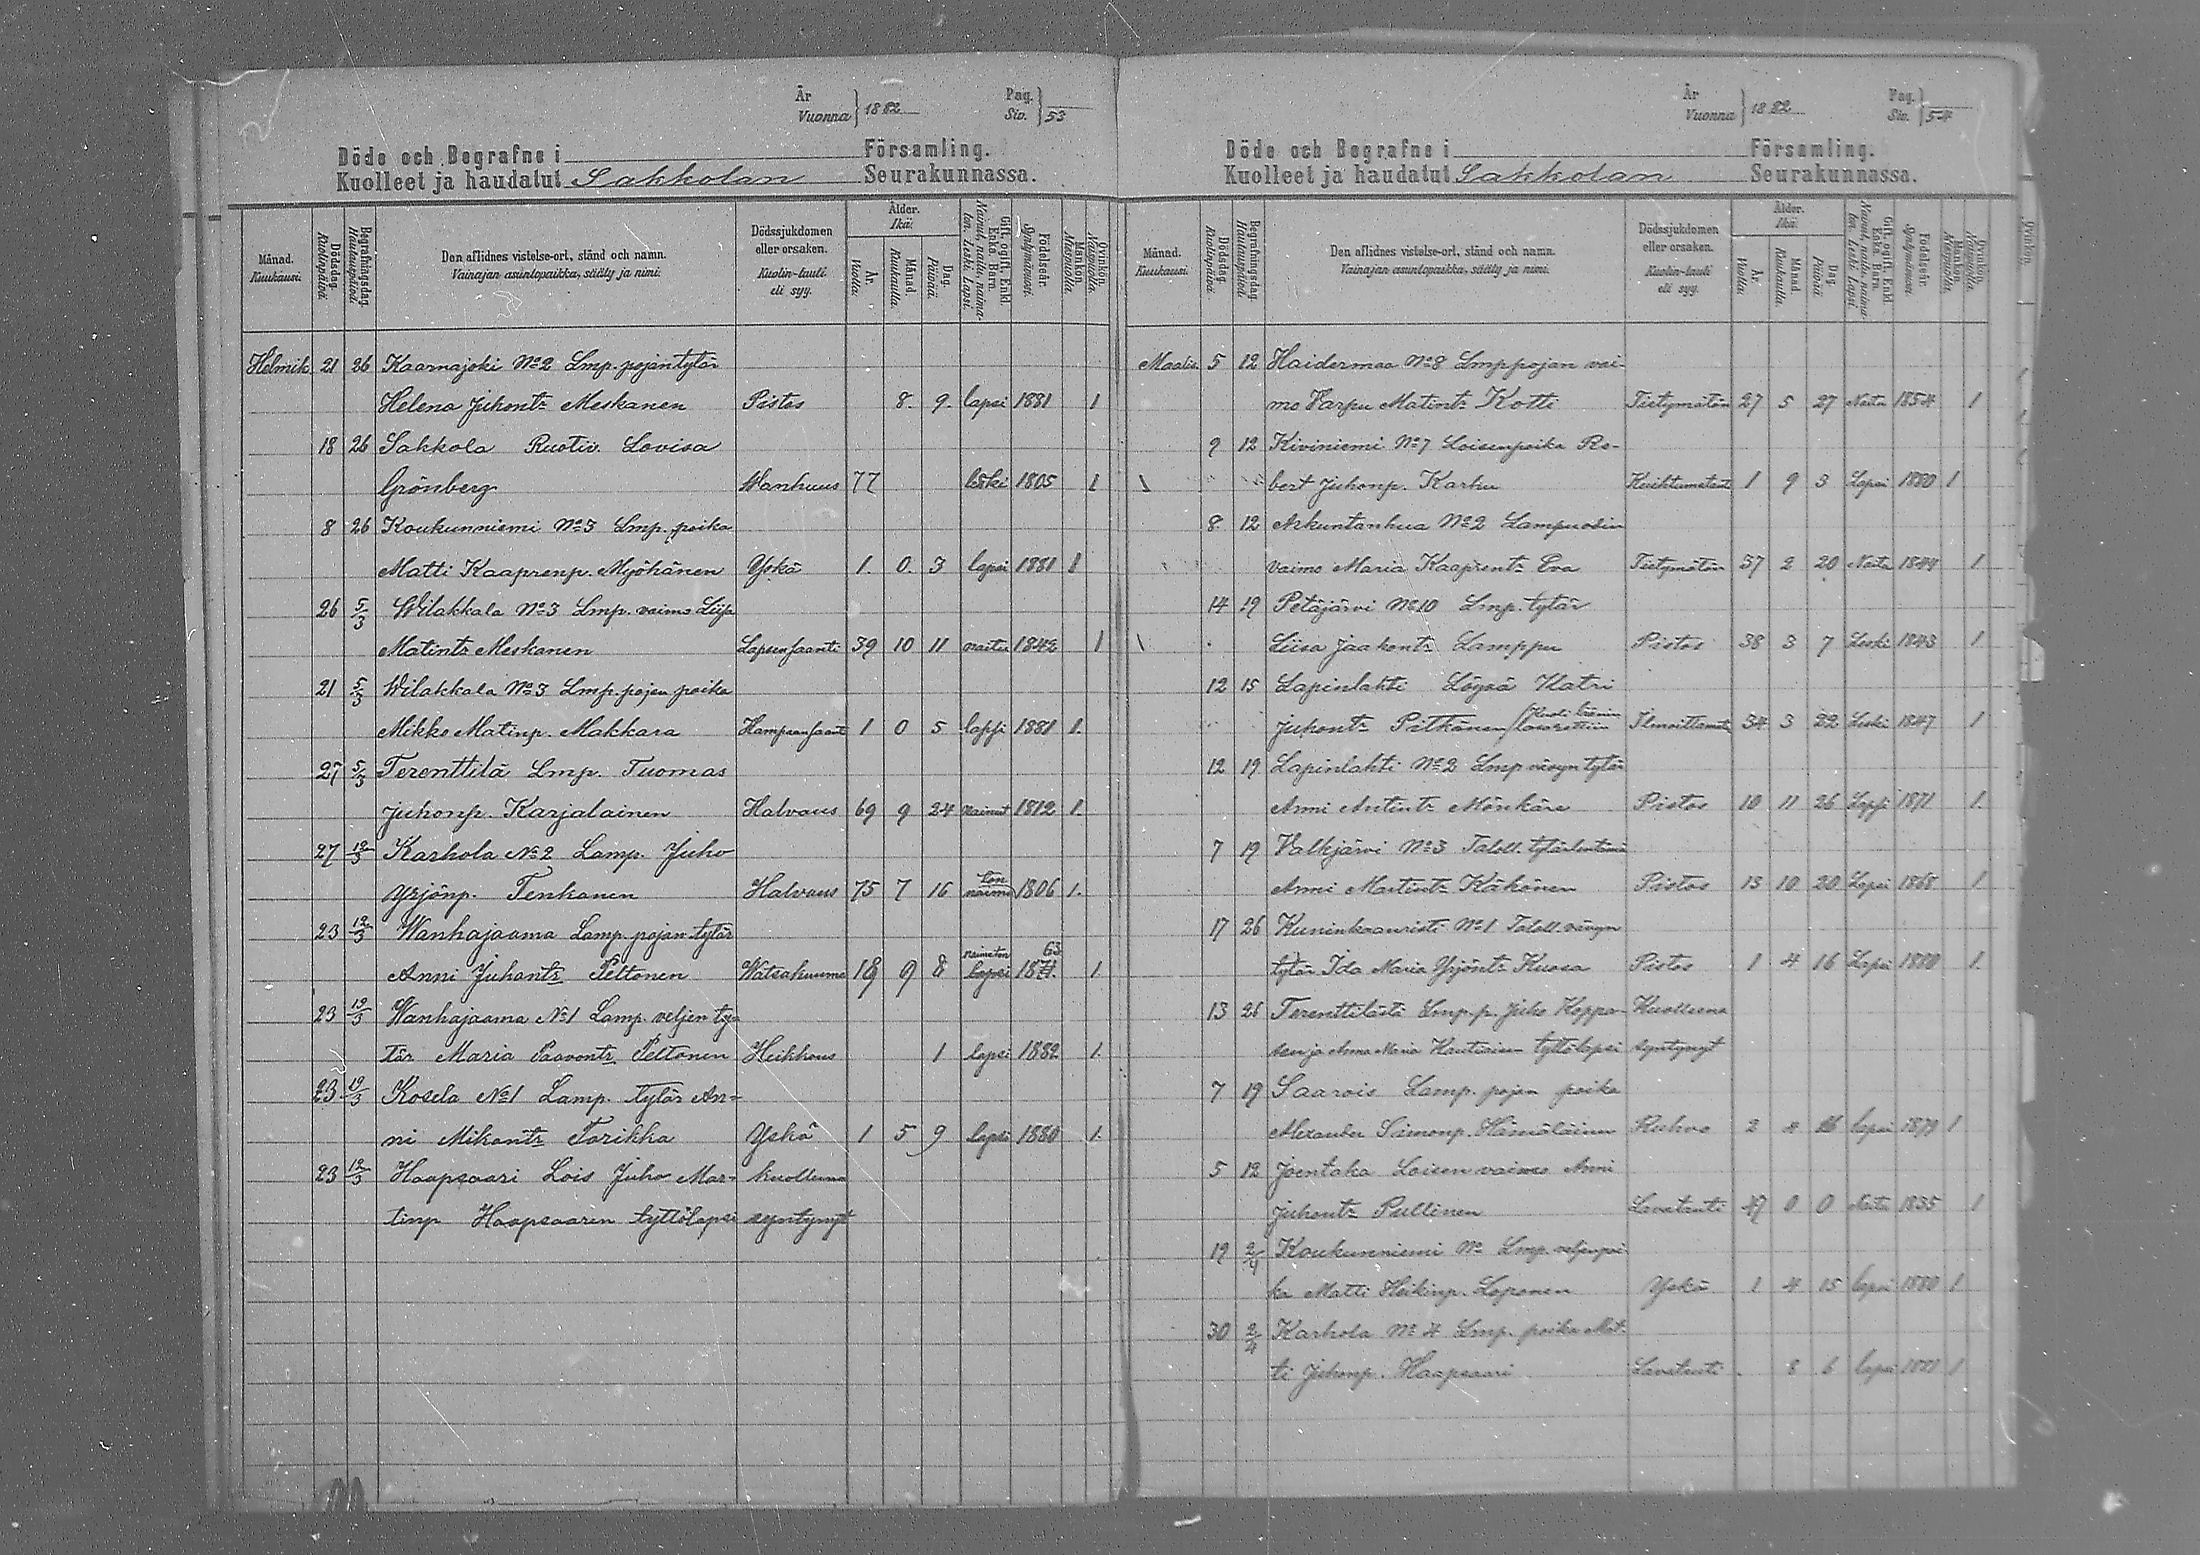 År
Vuonna } 1882
Pag.
Siv. } 53
Döde och Begrafne i Församling.
Kuolleet ja haudatut Sakkolan Seurakunnassa.
Månad. Kuukausi.
Dödsdag. Kuolinpäivä.
Begrafningsdag. Hautauspäivä.
Den aflidnes vistelse-ort, stånd och namn.
Vainajan asuntopaikka, sääty ja nimi.
Dödssjukdomen eller orsaken.
Kuolin-tauti eli syy.
Ålder. Ikä.
År. Vuotta.
Månad. Kuukautta.
Dag. Päivää.
Gift, ogift, Enkl. Enka. Barn.
Nainut, naitu, naimaton. Leski. Lapsi.
Födelseår. Syntymävuosi.
Mankön. Miespuolia.
Qvinkön. Naispuolia.
Helmik. 21 26 Kaarnajoki No 2 Lmp. pojantytär
Helena Juhontr Meskanen Pistos 8. 9. lapsi 1881 1
18 26 Sakkola Ruotiv. Lovisa
Grönberg Wanhuus 77 leski 1805 1
8 26 Koukunniemi No 3 Lmp. poika
Matti Kaaprenp. Myöhänen Yskä 1. 0. 3 lapsi 1881 1
26 5/3 Wilakkala No 3 Lmp. vaimo Liisa
Matintr Meskanen Lapsensaanti 39 10 11 naitu 1842 1
21 5/3 Wilakkala No 3 Lmp. pojan poika
Mikko Matinp. Makkara Hampaansaant 1 0 5 lapsi 1881 1.
27 5/3 Terenttilä Lmp. Tuomas
Juhonp. Karjalainen Halvaus 69 9 24 nainut 1812 1.
27 12/3 Karhola No 2 Lamp. Juho
Yrjönp. Tenkanen Halvaus 75 7 16 naimaton 1806 1.
23 12/3 Wanhajaama Lamp. pojan tytär
Anni Juhontr Peltonen Watsakuume 18 9 8 naimaton lapsi 63 1871. 1.
23 12/3 Wanhajaama No 1 Lamp. veljen ty-
tär Maria Paavontr Peltonen Heikkous 1 lapsi 1882 1.
23 12/3 Kosela No 1 Lamp. tytär An-
ni Mikontr Torikka Yskä 1 5 9 lapsi 1880 1.
23 12/3 Haapsaari Lois Juho Mar- kuolleena
tinp Haapsaaren tyttölapsi syntynyt
År
Vuonna } 1882
Pag.
Siv. } 54
Döde och Begrafne i Församling.
Kuolleet ja haudatut Sakkolan Seurakunnassa.
Månad. Kuukausi.
Dödsdag. Kuolinpäivä.
Begrafningsdag. Hautauspäivä.
Den aflidnes vistelse-ort, stånd och namn.
Vainajan asuntopaikka, sääty ja nimi.
Dödssjukdomen eller orsaken.
Kuolin-tauti eli syy.
Ålder. Ikä.
År. Vuotta.
Månad. Kuukautta.
Dag. Päivää.
Gift, ogift, Enkl. Enka. Barn.
Nainut, naitu, naimaton. Leski. Lapsi.
Födelseår. Syntymävuosi.
Mankön. Miespuolia.
Qvinkön. Naispuolia.
Maalis. 5 12 Haidermaa No 8 Lmp pojan vai-
mo Varpu Matintr Kotti Tietymätön 27 5 27 Naitu 1854 1
9 12 Kiviniemi No 7 Loisenpoika Ro-
bert Juhonp. Karhu 1 9 3 Lapsi 1880 1
8 12 Arkuntanhua No 2 Lampuodin
vaimo Maria Kaaprentr Eva Tietymätön 37 2 20 Naitu 1844 1
14 19 Petäjärvi No 10 Lmp. tytär
Liisa Jaakontr Lamppu Pistos 38 3 7 Leski 1843 1
12 15 Lapinlahti Löysä Katri
Juhontr Pitkänen Ilmoittamata 34 3 22 Leski 1847 1
12 19 Lapinlahti No 2 Lmp vävyn tytär
Anni Antintr Mönkäre Pistos 10 11 26 Lapsi 1871 1.
7 19 Valkjärvi No 3 Taloll.
Anni Martintr Kähönen Pistos 13 10 20 Lapsi 1868 1
17 26 Kuninkaanristi No 1 Taloll. vävyn
tytär Ida Maria Yrjöntr Kuosa Pistos 1 4 16 Lapsi 1880 1.
13 26 Terenttilästä Lmp. p. Juho Koppo- Kuolleena
sen ja Anna Maria Hautiaisen tyttölapsi syntynyt
7 19 Saarois Lamp. pojan poika
Alexander Simonp. Hämäläinen 2 4 16 lapsi 1879 1
5 12 Joentaka Loisen vaimo Anni
Juhontr Pullinen Lavatauti 47 0 0 Naitu 1835 1
19 2/4 Koukunniemi No Lmp. veljenpoi-
ka Matti Heikinp. Loponen Yskä 1 4 15 lapsi 1880 1
30 2/4 Karhola No 4 Lmp. poika Mat-
ti Juhonp. Haapsaari Lavatauti . 8 6 lapsi 1881 1